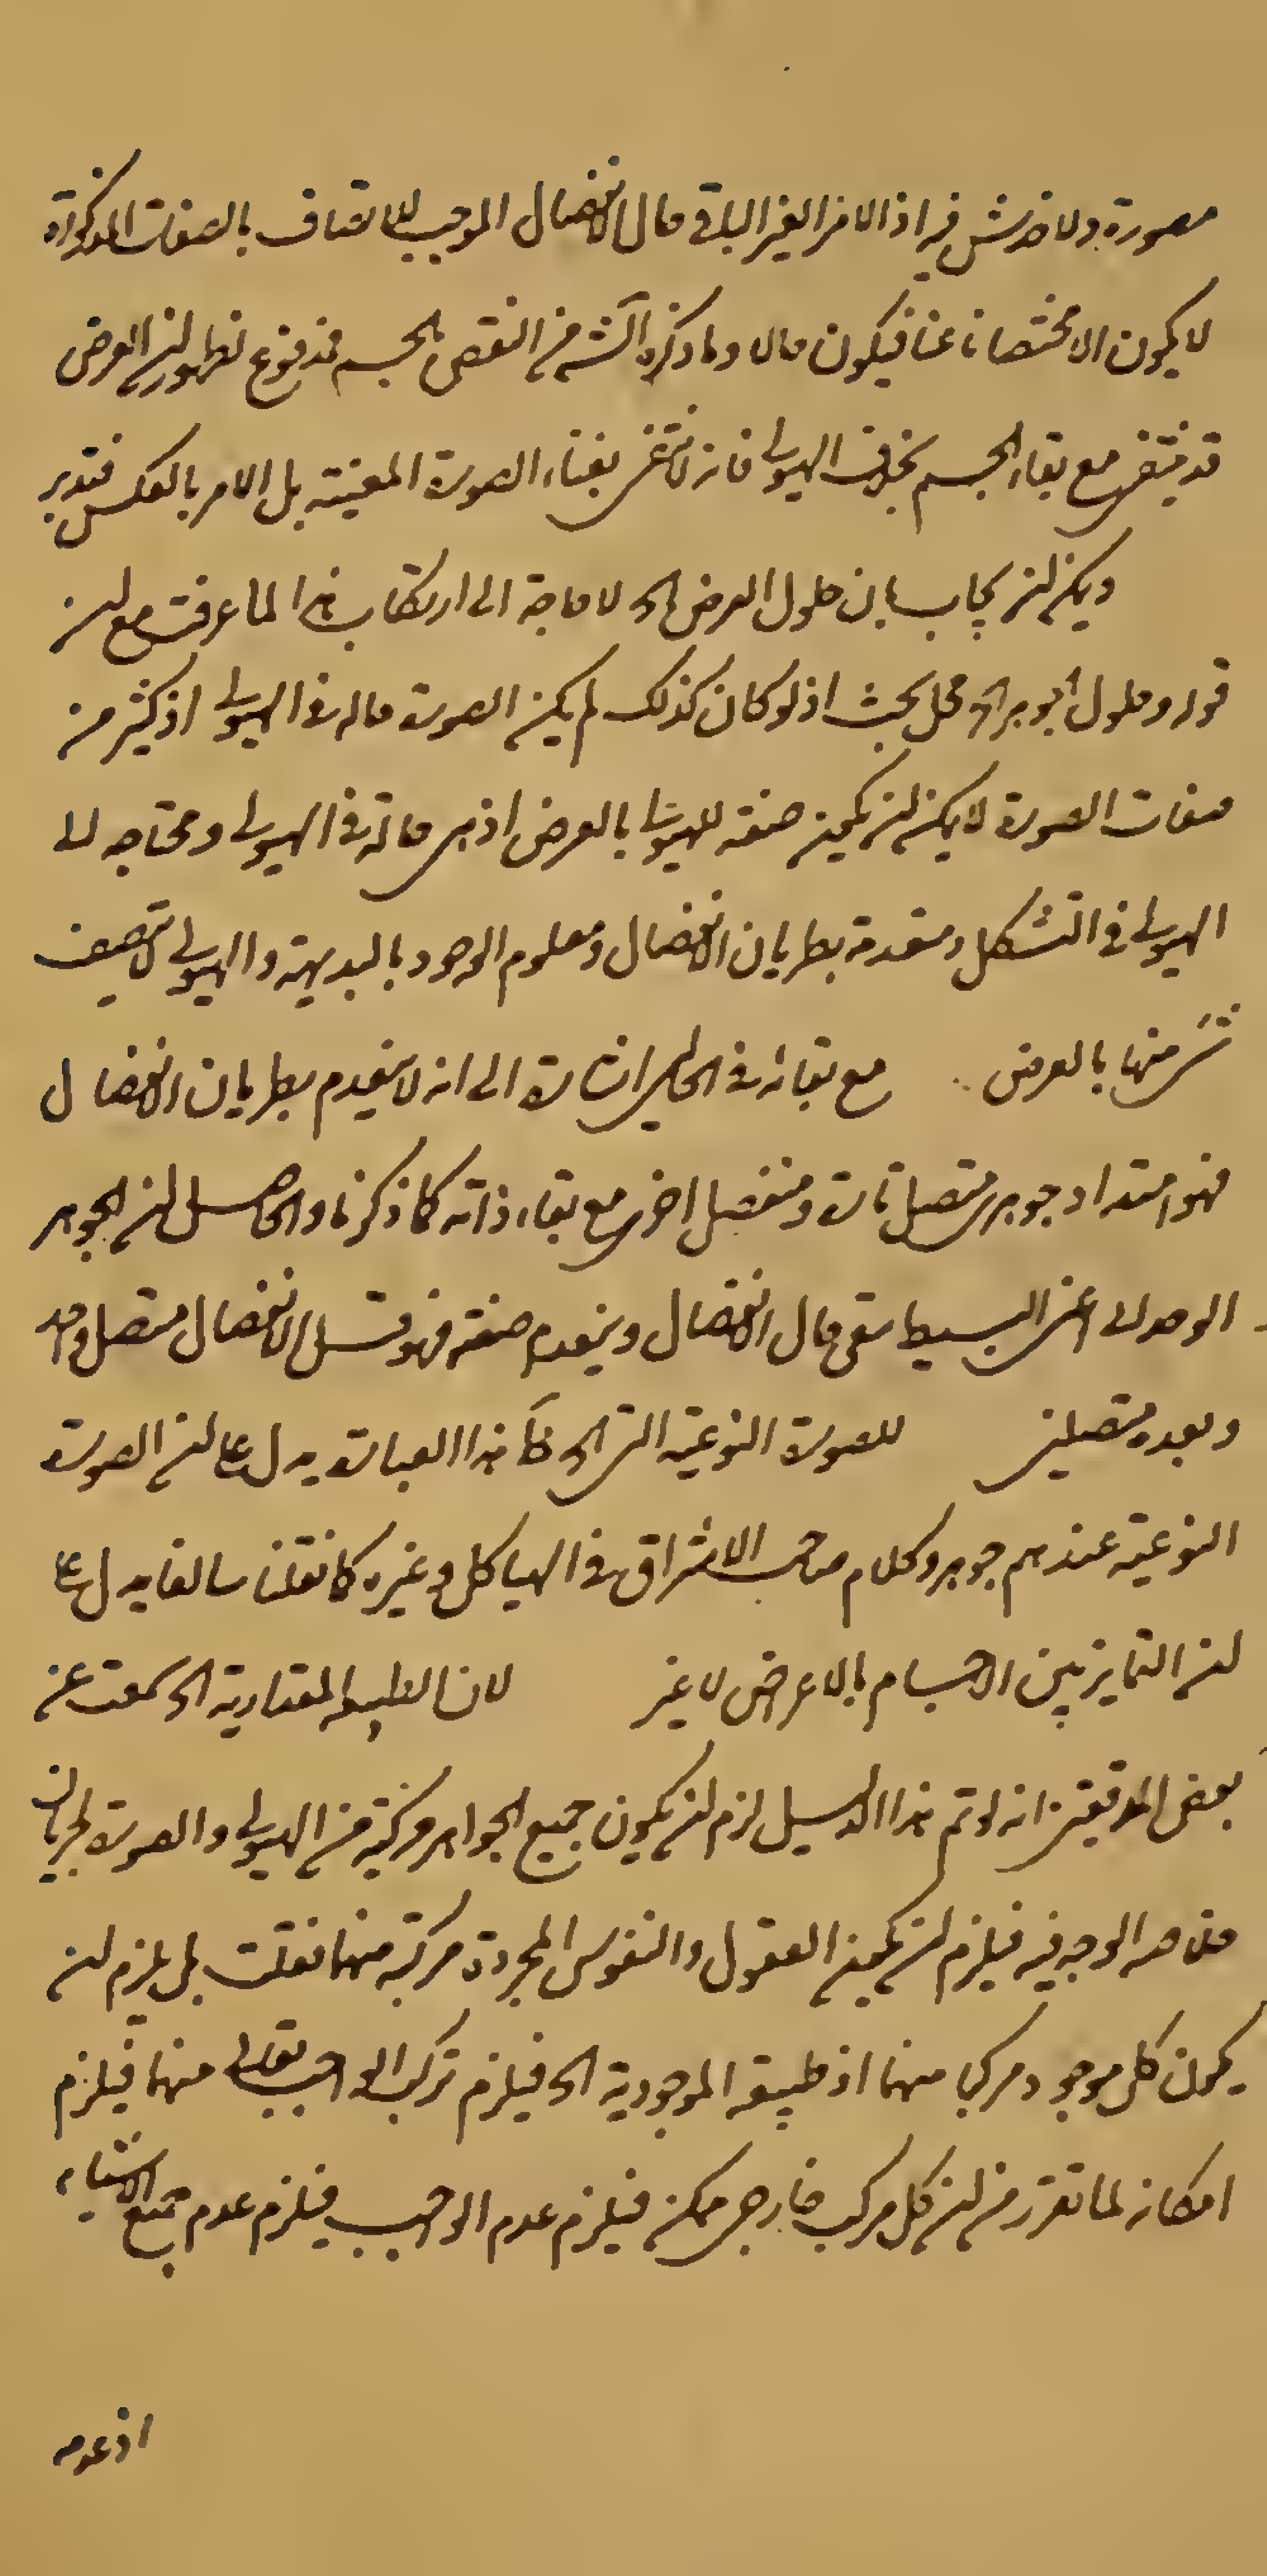 صورة ولا خدش فيه اذ الامر الغير الباقي حال الانفصال الموجب للاتصاف بالصفات المذكورة
لا يكون الا مختصا ناعتا فيكون حالا وما ذكره الشـ من النقض بالجسم مدفوع لظهور ان العرض
قد ينتفي مع بقاء الجسم بخلاف الهيولى فانه لا تنتفي بفناء الصورة المعينة بل الامر بالعكس فتدبر
ويمكن ان يجاب بان حلول العرض الخ لا حاجة الى ارتكاب هذا لما عرفت مع ان
قوله وحلول الجوهر الخ محل بحث اذ لو كان كذلك لم يكن الصورة حالة في الهيولى اذ كثير من
صفات الصورة لا يمكن ان يكون صفة للهيولى بالعرض اذ هي حالة في الهيولى ومحتاجه الى
الهيولى في التشكل ومنعدمة بطريان الانفصال ومعلوم الوجود بالبديهة والهيولى لا تتصف
بشئ منها بالعرض مع بقائه في الحالين اشارة الى انه لا ينعدم بطريان الانفصال
فهو امتداد جوهرى متصل تارة ومنفصل اخرى مع بقاء ذاته كما ذكرنا والحاصل ان الجوهر
الوحدانى اعنى البسيط يبقى حال الانفصال وينعدم صفته فهو قبل الانفصال متصل واحد
وبعده متصلين للصورة النوعية التى الخ هذا العبارة يدل على ان الصورة
النوعية عندهم جوهر وكلام صاحب الاشراق في الهياكل وغيره كما نقلنا سالفا يدل على
ان التمايز بين الاجسام بالاعراض لا غير لان الطبيعة المقدارية الخ سمعت عن
بعض المدققين انه لو تم هذا الدليل لزم ان يكون جميع الجواهر مركبة من الهيولى والصورة لجريان
خلاصه الوجه فيه فيلزم ان يكون العقول والنفوس المجردة مركبة منهما فقلت بل يلزم ان
يكون كل موجود مركبا منهما اذ طبيعة الموجودية الخ فيلزم تركب الواجب تعالى منهما فيلزم
امكانه لما تقرر من ان كل مركب خارجى ممكن فيلزم عدم الواجب فيلزم عدم جميع الاشياء
اذ عدم